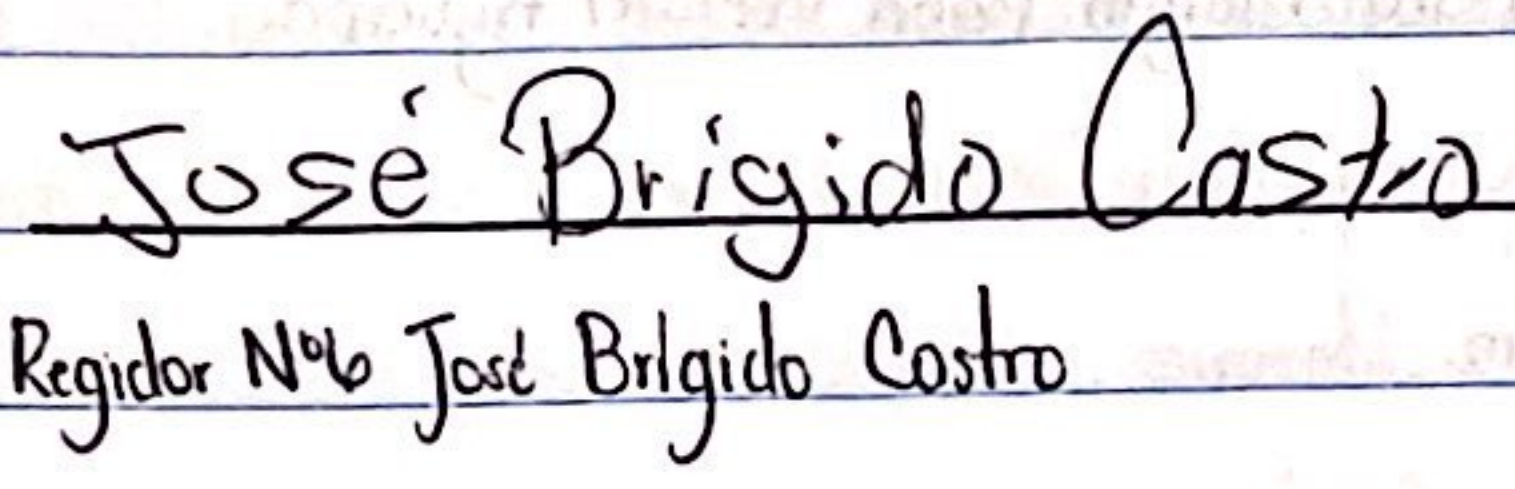 José Brígido Castro
Regidor Nº6 José Brígido Castro